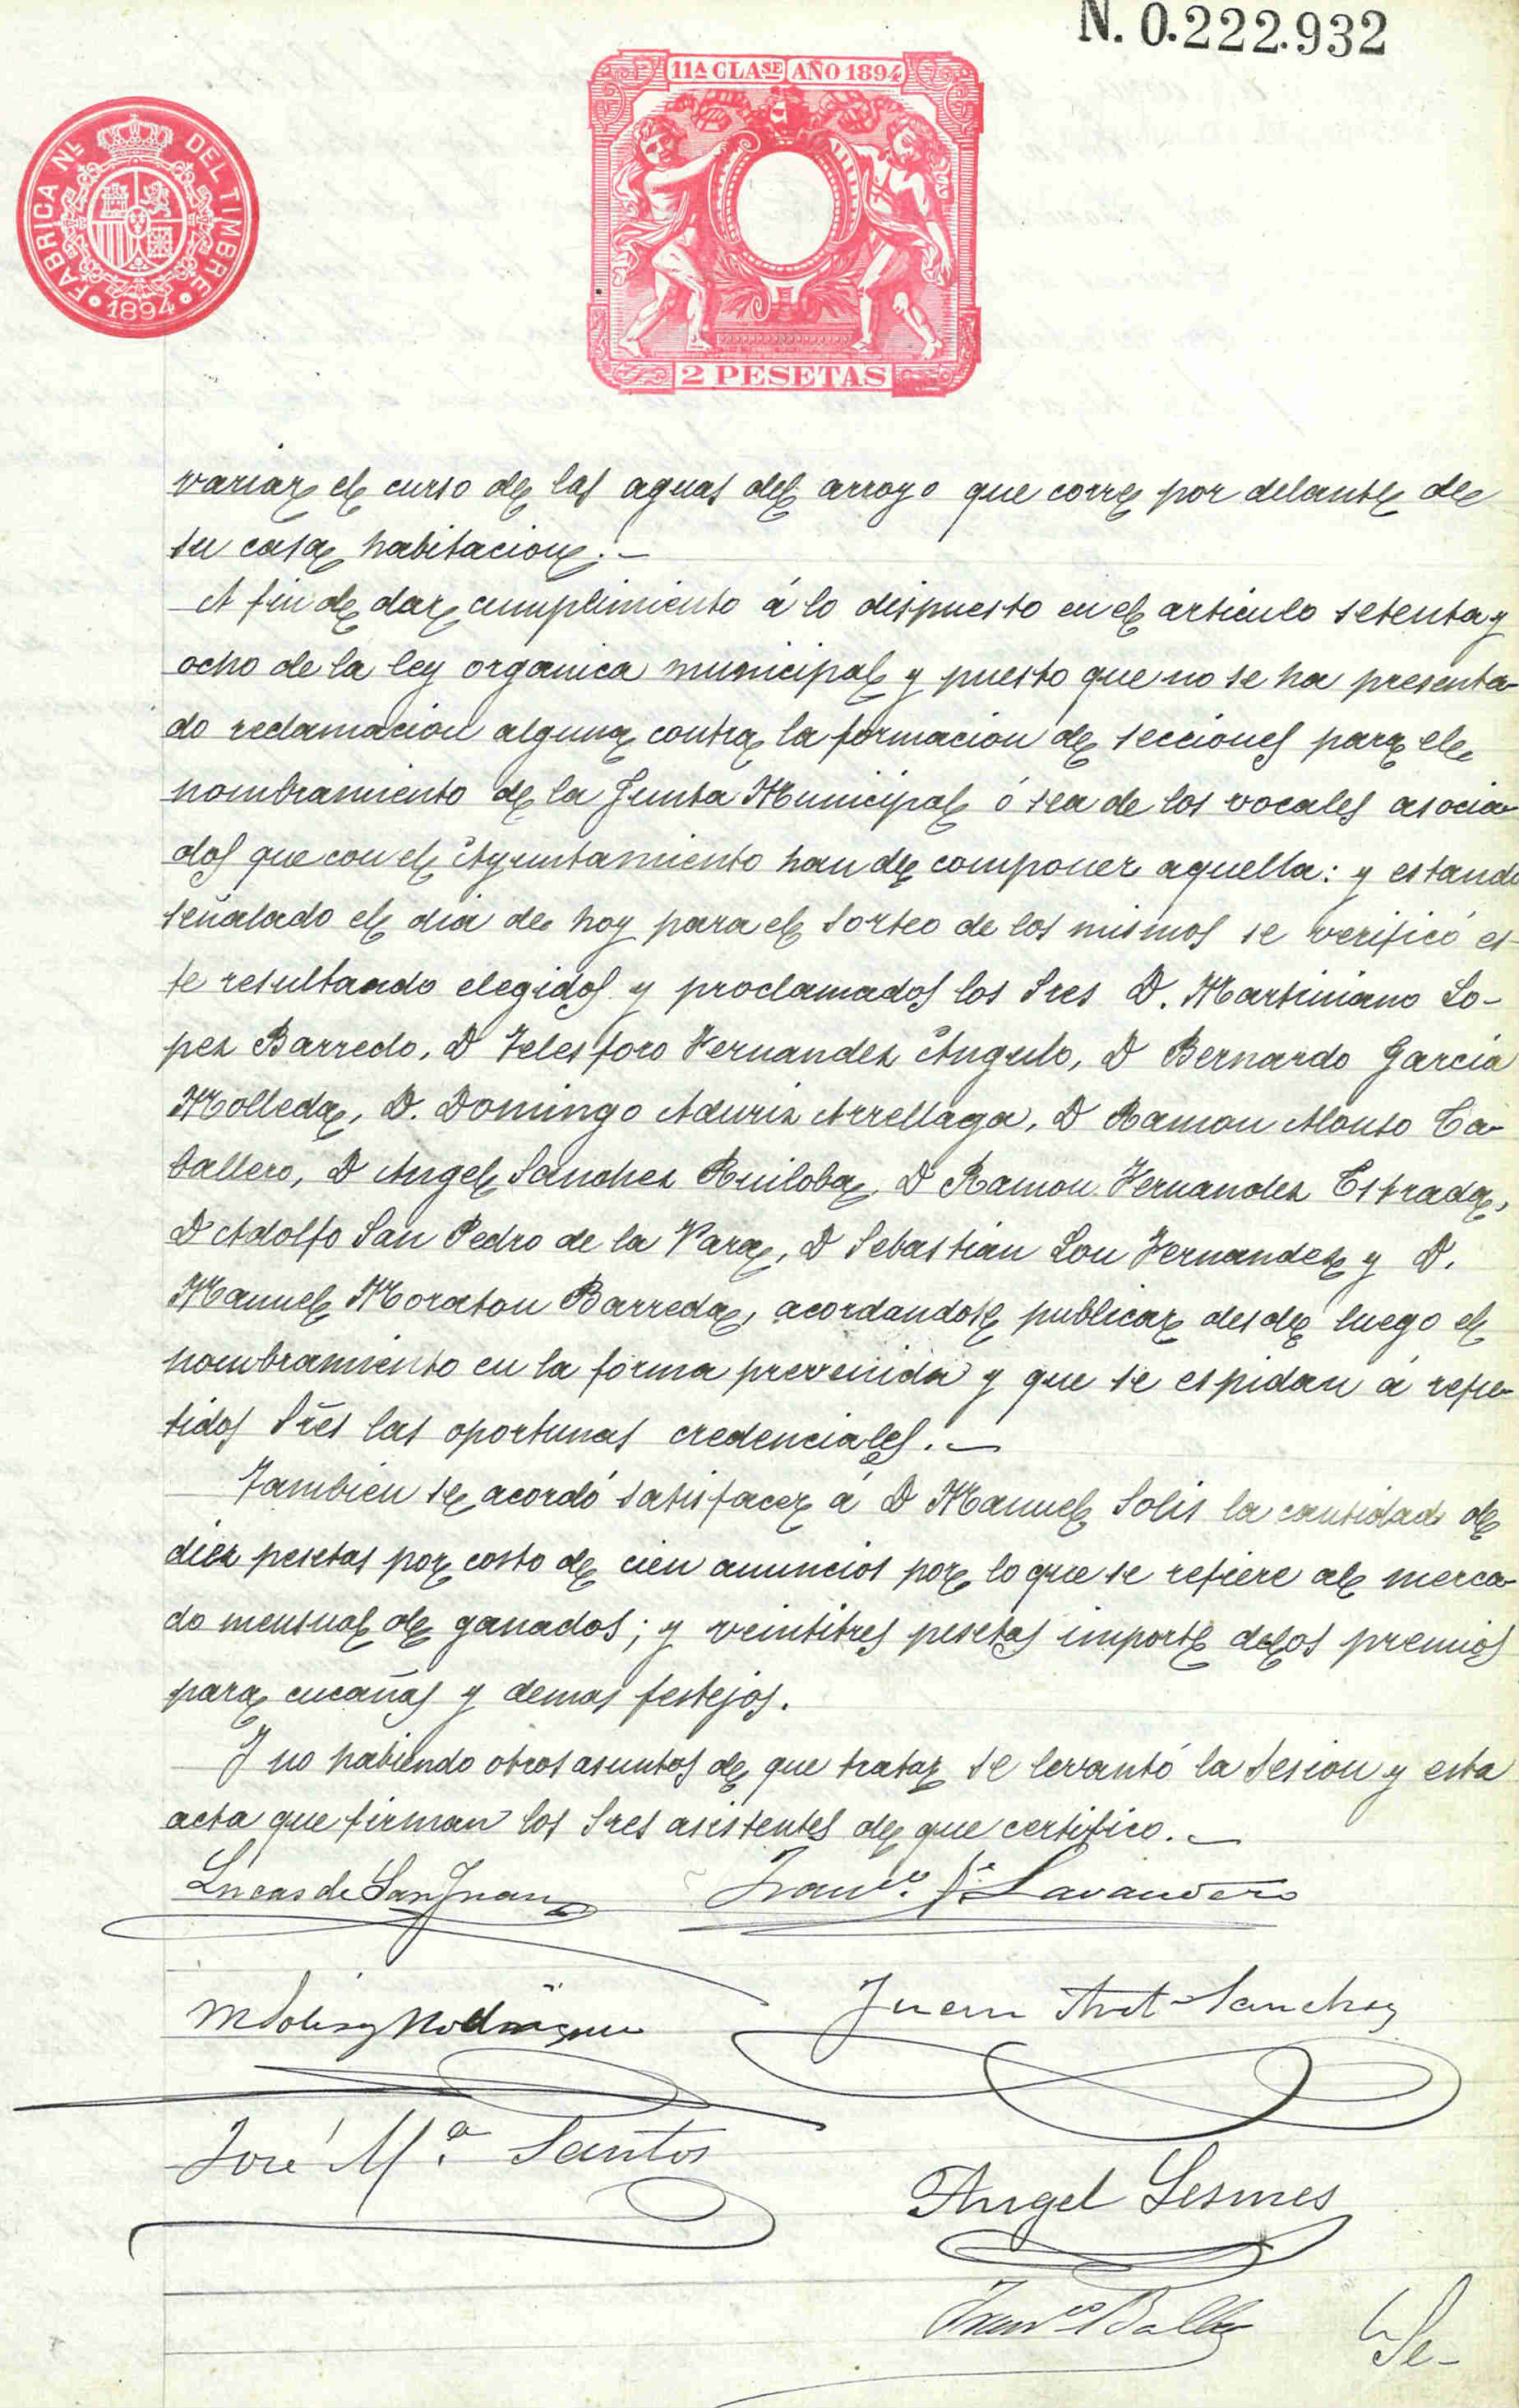 N. 0.222.932
11A CLASE AÑO 1894
FABRICA NL DEL TIMBRE
1894
2 PESETAS
variar el curso de las aguas del arroyo que corre por delante de
su casa habitacion.-
A fin de dar cumplimiento á lo dispuesto en el articulo setenta y
ocho de la ley organica municipal y puesto que no se ha presenta-
do reclamacion alguna contra la formacion de secciones para el
nombramiento de la Junta Municipal ó sea de los vocales asocia-
dos que con el Ayuntamiento han de componer aquella: y estando
señalado el dia de hoy para el sorteo de los mismos se verificó es-
te resultando elegidos y proclamados los Sres D. Martiniano Lo-
pez Barredo, D Telesforo Fernandez Angulo, D Bernardo Garcia
Molleda, D. Domingo Aduriz Arrellaga, D Ramon Alonso Ca-
ballero, D Angel Sanchez Ruiloba, D Ramon Fernandez Estrada,
D Adolfo San Pedro de la Vara, D Sebastian Lou Fernandez y D.
Manuel Moraton Barreda, acordandose publicar desde luego el
nombramiento en la forma prevenida y que se espidan á repe-
tidos Sres las oportunas credenciales.-
Tambien se acordó satisfacer á D Manuel Solis la cantidad de
diez pesetas por costo de cien anuncios por lo que se refiere al merca-
do mensual de ganados; y veintitres pesetas importe de los premios
para cucañas y demas festejos.
Y no habiendo otros asuntos de que tratar se levantó la sesion y esta
acta que firman los Sres asistentes de que certifico.-
Lucas de San Juan
Franco. Lavandero
M Solis y Rodriguez
Juan Ant Sanchez
José M.a Santos
Angel Lesmes
Franco
Se-